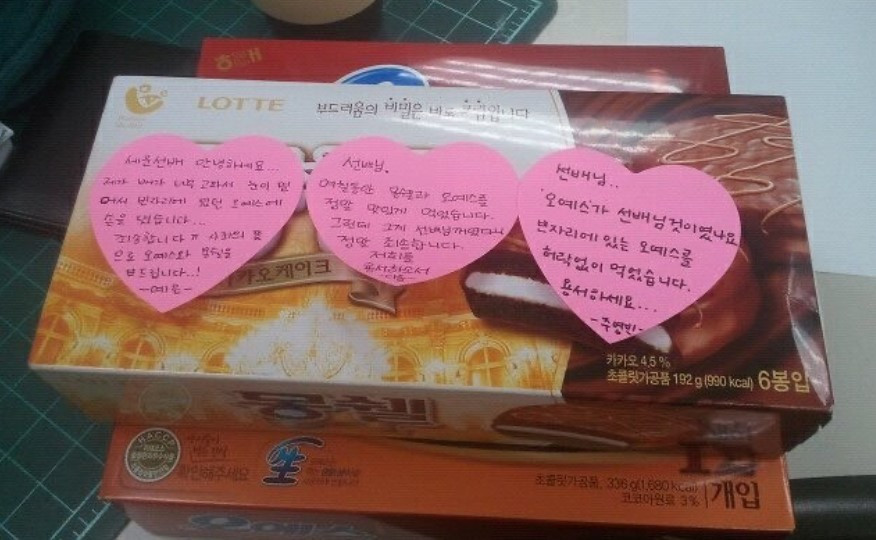 해태
LOTTE
부드러움의 비밀은 바로 크림입니다
세은선배 안녕하세요...
제가 배가 너무 고파서 눈이 멀
어서 빈자리에 있던 오예스에
손을 댔습니다...
죄송합니다ㅠ 사과의 표
으로 오예스와 몽쉘을
부드립니다..!
-예은-
선배님.
며칠동안 몽쉘과 오예스를
정말 맛있게 먹었습니다.
그런데 그게 선배님꺼였다니
정말 죄송합니다.
저희를
용서하소서
선배님..
오예스가 선배님것이였나요
빈자리에 있는 오예스를
허락없이 먹었습니다.
용서하세요....
-주영빈-
카카오케이크
카카오 4.5%
초콜릿가공품 192 g (990 kcal) 6봉입
몽쉘
HACCP
확인해주세요
生
초콜릿가공품, 336 g(1,680 kcal)
코코아원료 3%
개입
오예스